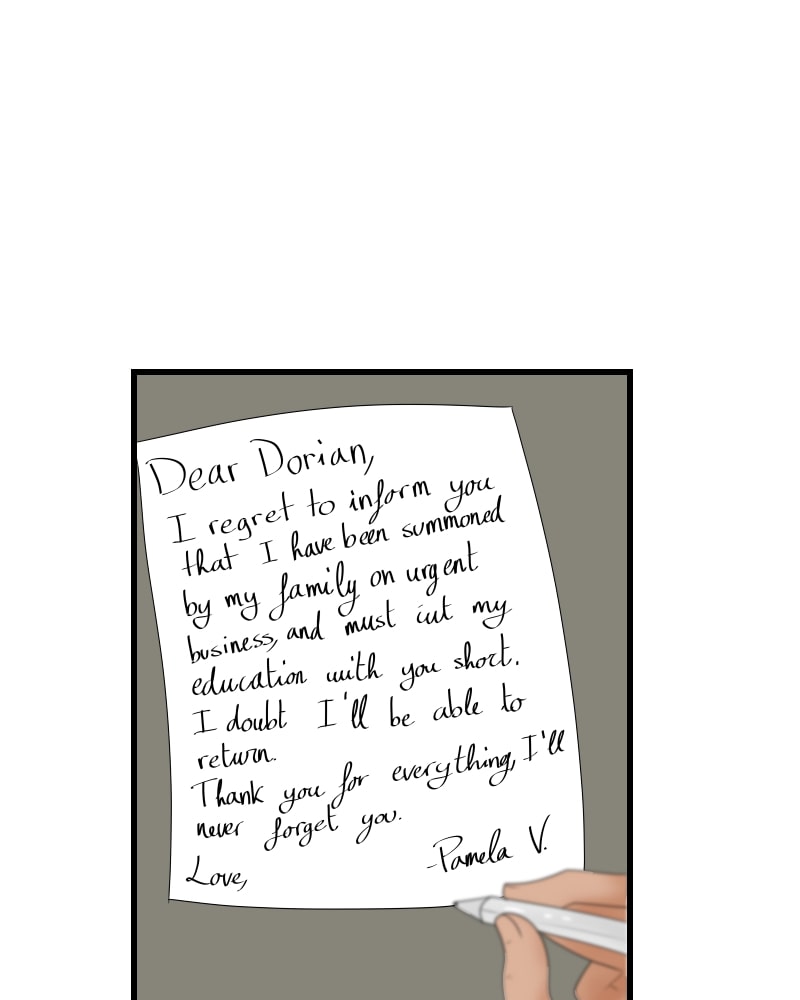 Dear Dorian,
I regret to inform you
that I have been summoned
by my family on urgent
business, and must cut my
education with you short.
I doubt I'll be able to
return.
Thank you for everything, I'll
never forget you.
Love,
-Pamela V.